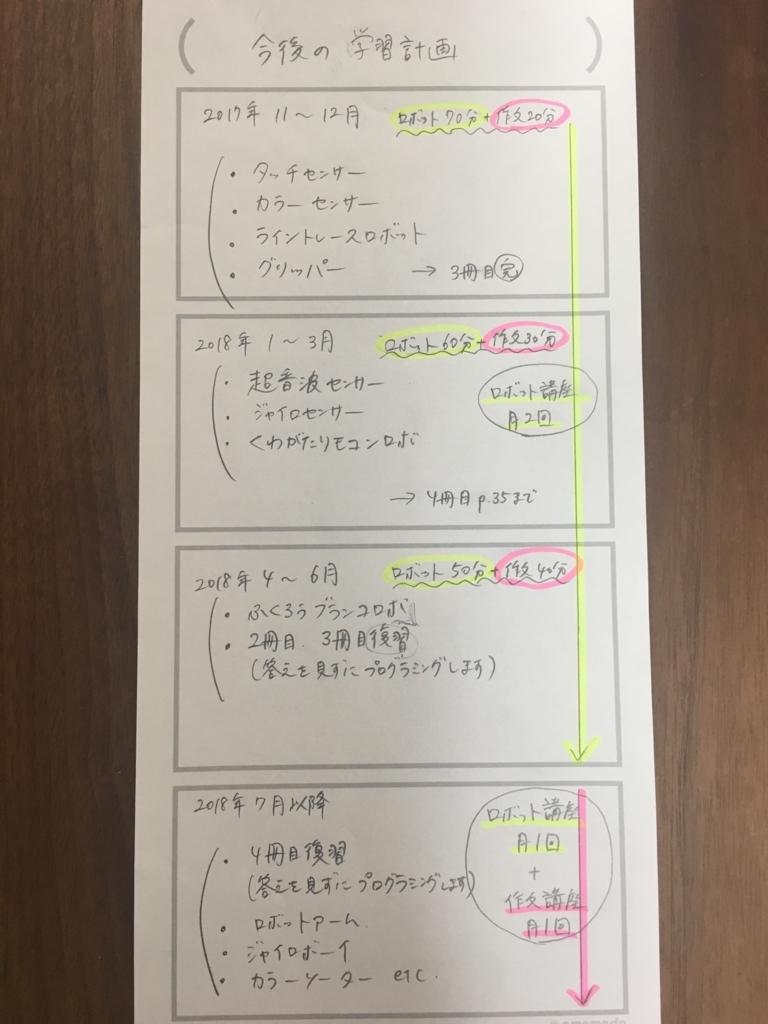 今後の 学習計画
2017年 11～12月 ロボット70分+作文20分
・タッチセンサー
・カラーセンサー
・ライントレースロボット
・グリッパー → 3冊目完
2018年 1～3月 ロボット60分+作文30分
・超音波センサー
・ジャイロセンサー
・くわがたリモコンロボ
ロボット講座
月2回
→ 4冊目p.35まで
2018年 4～6月 ロボット50分+作文40分
・ふくろうブランコロボ
・2冊目、3冊目復習
(答えを見ずにプログラミングします)
2018年7月以降
・4冊目復習
(答えを見ずにプログラミングします)
・ロボットアーム
・ジャイロボーイ
・カラーソーター etc.
ロボット講座
月1回
+
作文講座
月1回